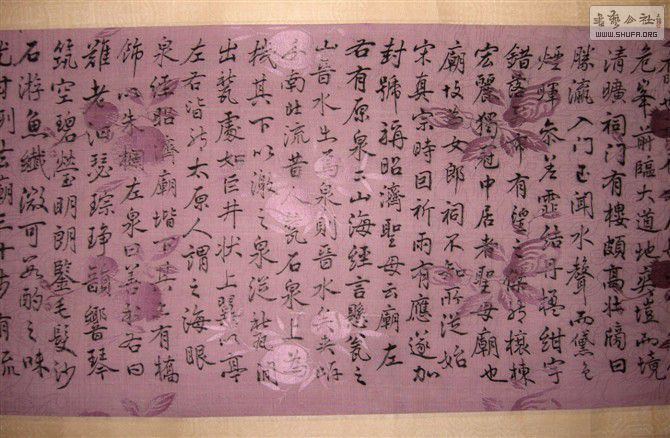 危峯前臨大道地甚塏而境
清曠祠門有樓頗高壯牓曰
勝瀛入門已聞水聲而黛色
煙暉參差霏結丹礱紺宇
錯落中有望之榱棟
宏麗獨冠中居者聖母廟也
廟故女郎祠不知所從始
宋真宗時因祈雨有應遂加
封號稱昭濟聖母云廟左
右有原泉二山海經言懸甕之
山晉水出焉泉則晉水矣
南北流昔人甃石泉上為
機其下以激之泉從北間
出甃處如巨井狀上翼以亭
左右皆然太原人謂之海眼
泉經昭濟廟堦下其上有橋
飾以朱欄左泉曰善利右曰
難老瑟琮琤韻響琴
筑空碧瑩明朗鑒毛髮沙
石游魚纖微可酌之味
書法公社
WWW.SHUFA.ORG